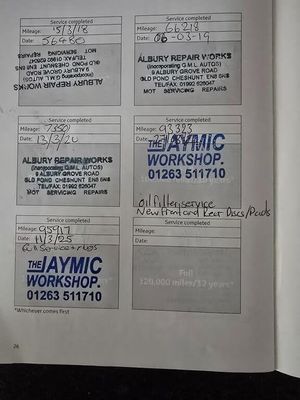 Service completed
Mileage: 15/3/18
Date: 56480
ALBURY REPAIR WORKS
(Incorporating G.M.L. AUTOS)
9 ALBURY GROVE ROAD
OLD POND CHESHUNT EN8 8NS
TEL/FAX 01992 626047
MOT SERVICING REPAIRS
Service completed
Mileage: 66218
Date: 06-03-19
ALBURY REPAIR WORKS
(Incorporating G.M.L. AUTOS)
9 ALBURY GROVE ROAD
OLD POND CHESHUNT EN8 8NS
TEL/FAX 01992 626047
MOT SERVICING REPAIRS
Service completed
Mileage:
Date: 13/3/20
ALBURY REPAIR WORKS
(Incorporating G.M.L. AUTOS)
9 ALBURY GROVE ROAD
OLD POND CHESHUNT EN8 8NS
TEL/FAX 01992 626047
MOT SERVICING REPAIRS
Service completed
Mileage: 93323
Date:
THE JAYMIC
WORKSHOP.
01263 511710
oil filter service
New Front and Rear Discs/Pads
Service completed
Mileage: 95917
Date: 11/3/25
Full Service + plugs
THE JAYMIC
WORKSHOP.
01263 511710
Service completed
Mileage:
Date:
Full
120,000 miles/12 years*
*Whichever comes first
26